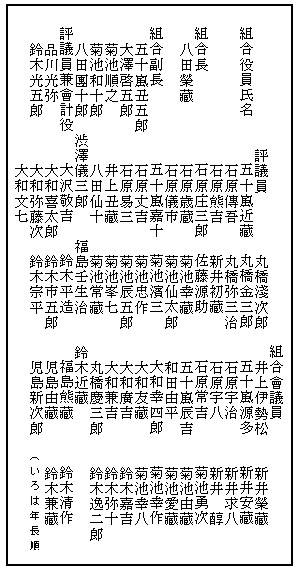 組合役員氏名
組合長
八田榮藏
組合副長
五十嵐丑五郎
大澤啓五郎
菊池順之
菊池和十郎
八田團十郎
評議員兼會計役
品川光弥
鈴木光五郎
評議員
五十嵐近藏
石原傳吾
石原熊吉
石原庄三郎
石原歳藏
石原儀市
五十嵐嘉十
石原丈吉
石原易三
井上丑藏
八田仙十
渋澤儀三郎
大沢敬吉
大和喜太郎
大和弥藤次
大和文七
丸橋淺次郎
丸橋金三郎
丸橋弥三治
新井初藏
佐藤源助
菊池幸藏
菊池仙太郎
菊池濱三
菊池忠作
菊池辰五郎
菊池峯七
菊池常藏
福島壬生治
鈴木平造
鈴木市五郎
鈴木宗平
組合會議員
井上伊勢松
五十嵐源多
石原宇治
石原宇八
石原常吉
五十嵐辰吉
和田由平
大和幸四郎
大和友藏
大和廣吉
大和兼吉
丸橋慶三郎
鈴木近藏
福島熊藏
児島由藏
児島新次郎
新井榮藏
新井安藏
新井求八
新井 醇
菊池勇次
菊池由藏
菊池愛藏
菊池幸作
菊池幸八
鈴木嘉吉
鈴木弥十
鈴木逸二郎
鈴木清作
鈴木兼藏
（いろは年長順